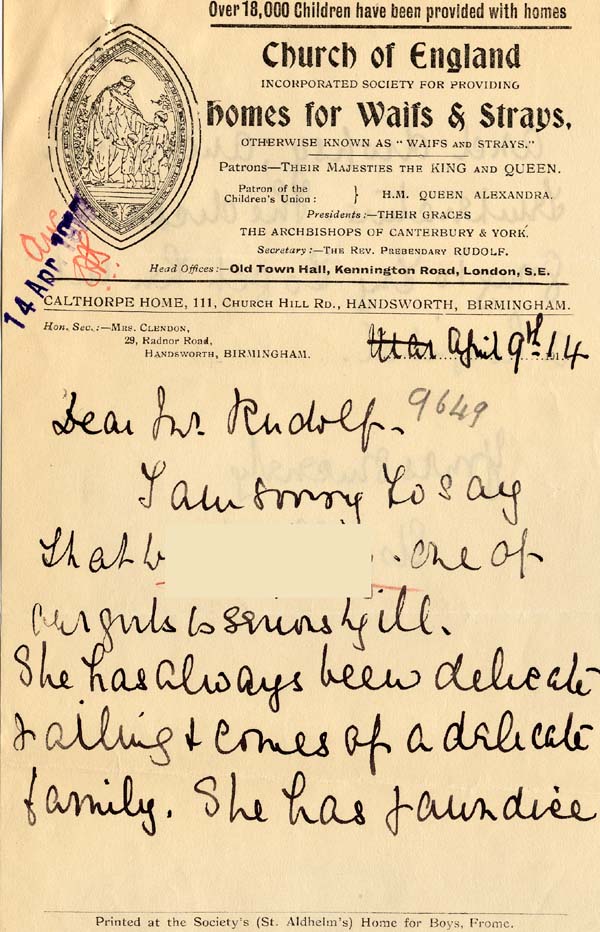 Over 18,000 Children have been provided with homes
Church of England
INCORPORATED SOCIETY FOR PROVIDING
Homes for Waifs & Strays,
OTHERWISE KNOWN AS "WAIFS AND STRAYS."
Patrons—THEIR MAJESTIES THE KING AND QUEEN.
Patron of the Children's Union: } H.M. QUEEN ALEXANDRA.
Presidents:—THEIR GRACES
THE ARCHBISHOPS OF CANTERBURY & YORK.
Secretary:—THE REV. PREBENDARY RUDOLF.
Head Offices:—Old Town Hall, Kennington Road, London, S.E.
14 APR
CALTHORPE HOME, 111, CHURCH HILL RD., HANDSWORTH, BIRMINGHAM.
Hon. Sec.:—MRS. CLENDON,
29, Radnor Road,
HANDSWORTH, BIRMINGHAM.
Mar April 9th 1914
Dear Mr. Rudolf 9649
I am sorry to say
that one of
our girls is seriously ill.
She has always been delicate
& ailing & comes of a delicate
family. She has jaundice
Printed at the Society's (St. Aldhelm's) Home for Boys, Frome.